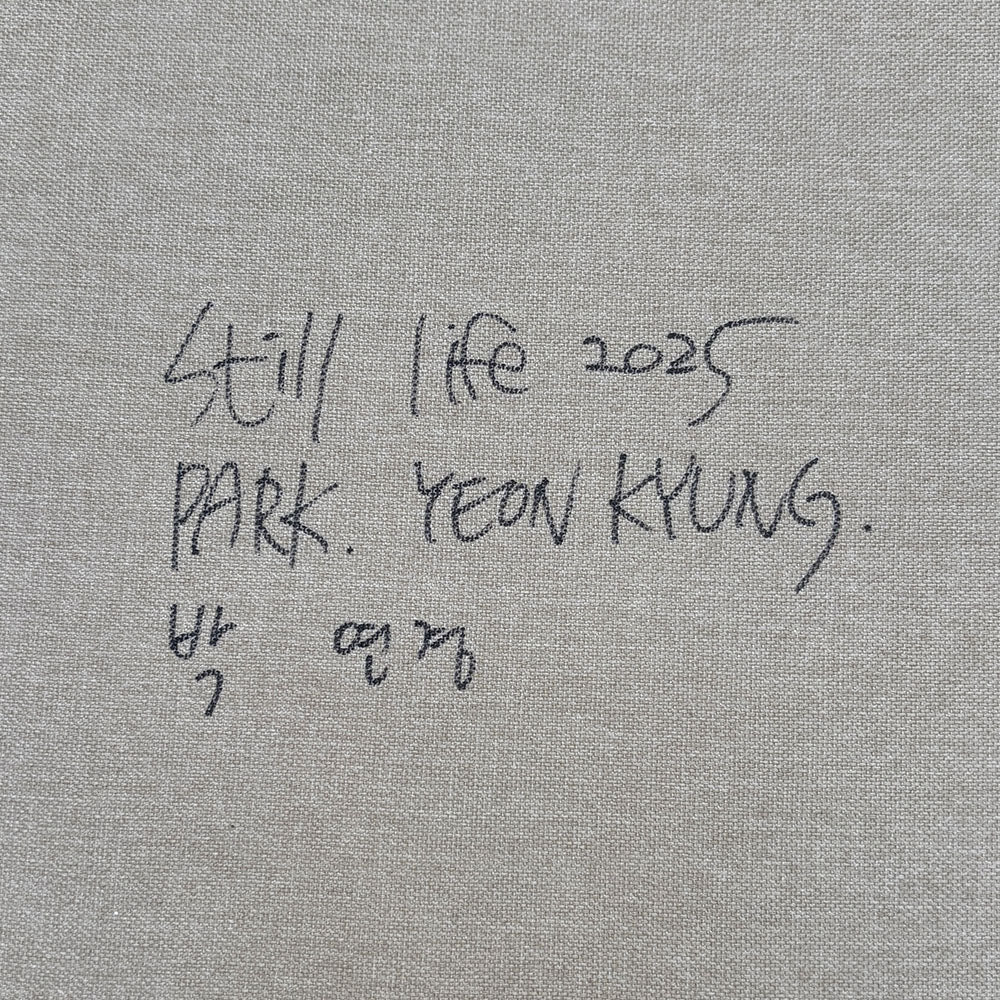 Still life 2025
PARK. YEON KYUNG.
박 연경